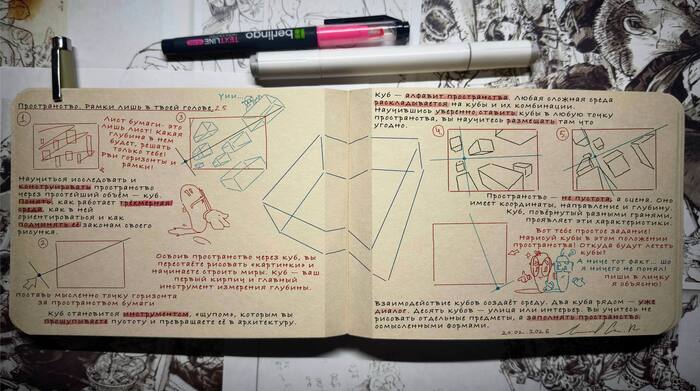 berlingo
TEXTLINE
Пространство. Рамки лишь в твоей голове.
25
1
Лист бумаги - это
лишь лист! Какая
глубина в нём
будет, решать
только тебе!
Рви горизонты и
рамки!
3
Научиться исследовать и
конструировать пространство
через простейший объём — куб.
Понять, как работает трёхмерная
среда, как в ней
ориентироваться и как
подчинять её законам своего
рисунка.
2
поставь мысленно точку горизонта
за пространство бумаги
Освоив пространство через куб, вы
перестаёте рисовать «картинки» и
начинаете строить миры. Куб — ваш
первый кирпич и главный
инструмент измерения глубины.
Куб становится инструментом, «щупом», которым вы
прощупываете пустоту и превращаете её в архитектуру.
Куб — алфавит пространства. Любая сложная среда
раскладывается на кубы и их комбинации.
Научившись уверенно ставить кубы в любую точку
пространства, вы научитесь размещать там что
угодно.
4
5
Пространство — не пустота, а сцена. Оно
имеет координаты, направление и глубину.
Куб, повёрнутый разными гранями,
проявляет эти характеристики.
Вот тебе простое задание!
Нарисуй кубы в этом положении
пространства! Откуда будут лететь
кубы?
А ничё тот факт... шо
я ничего не понял!
пиши в личку
я объясню!
Взаимодействие кубов создаёт среду. Два куба рядом — уже
диалог. Десять кубов — улица или интерьер. Вы учитесь не
рисовать отдельные предметы, а заполнять пространство
осмысленными формами.
20.02.2026